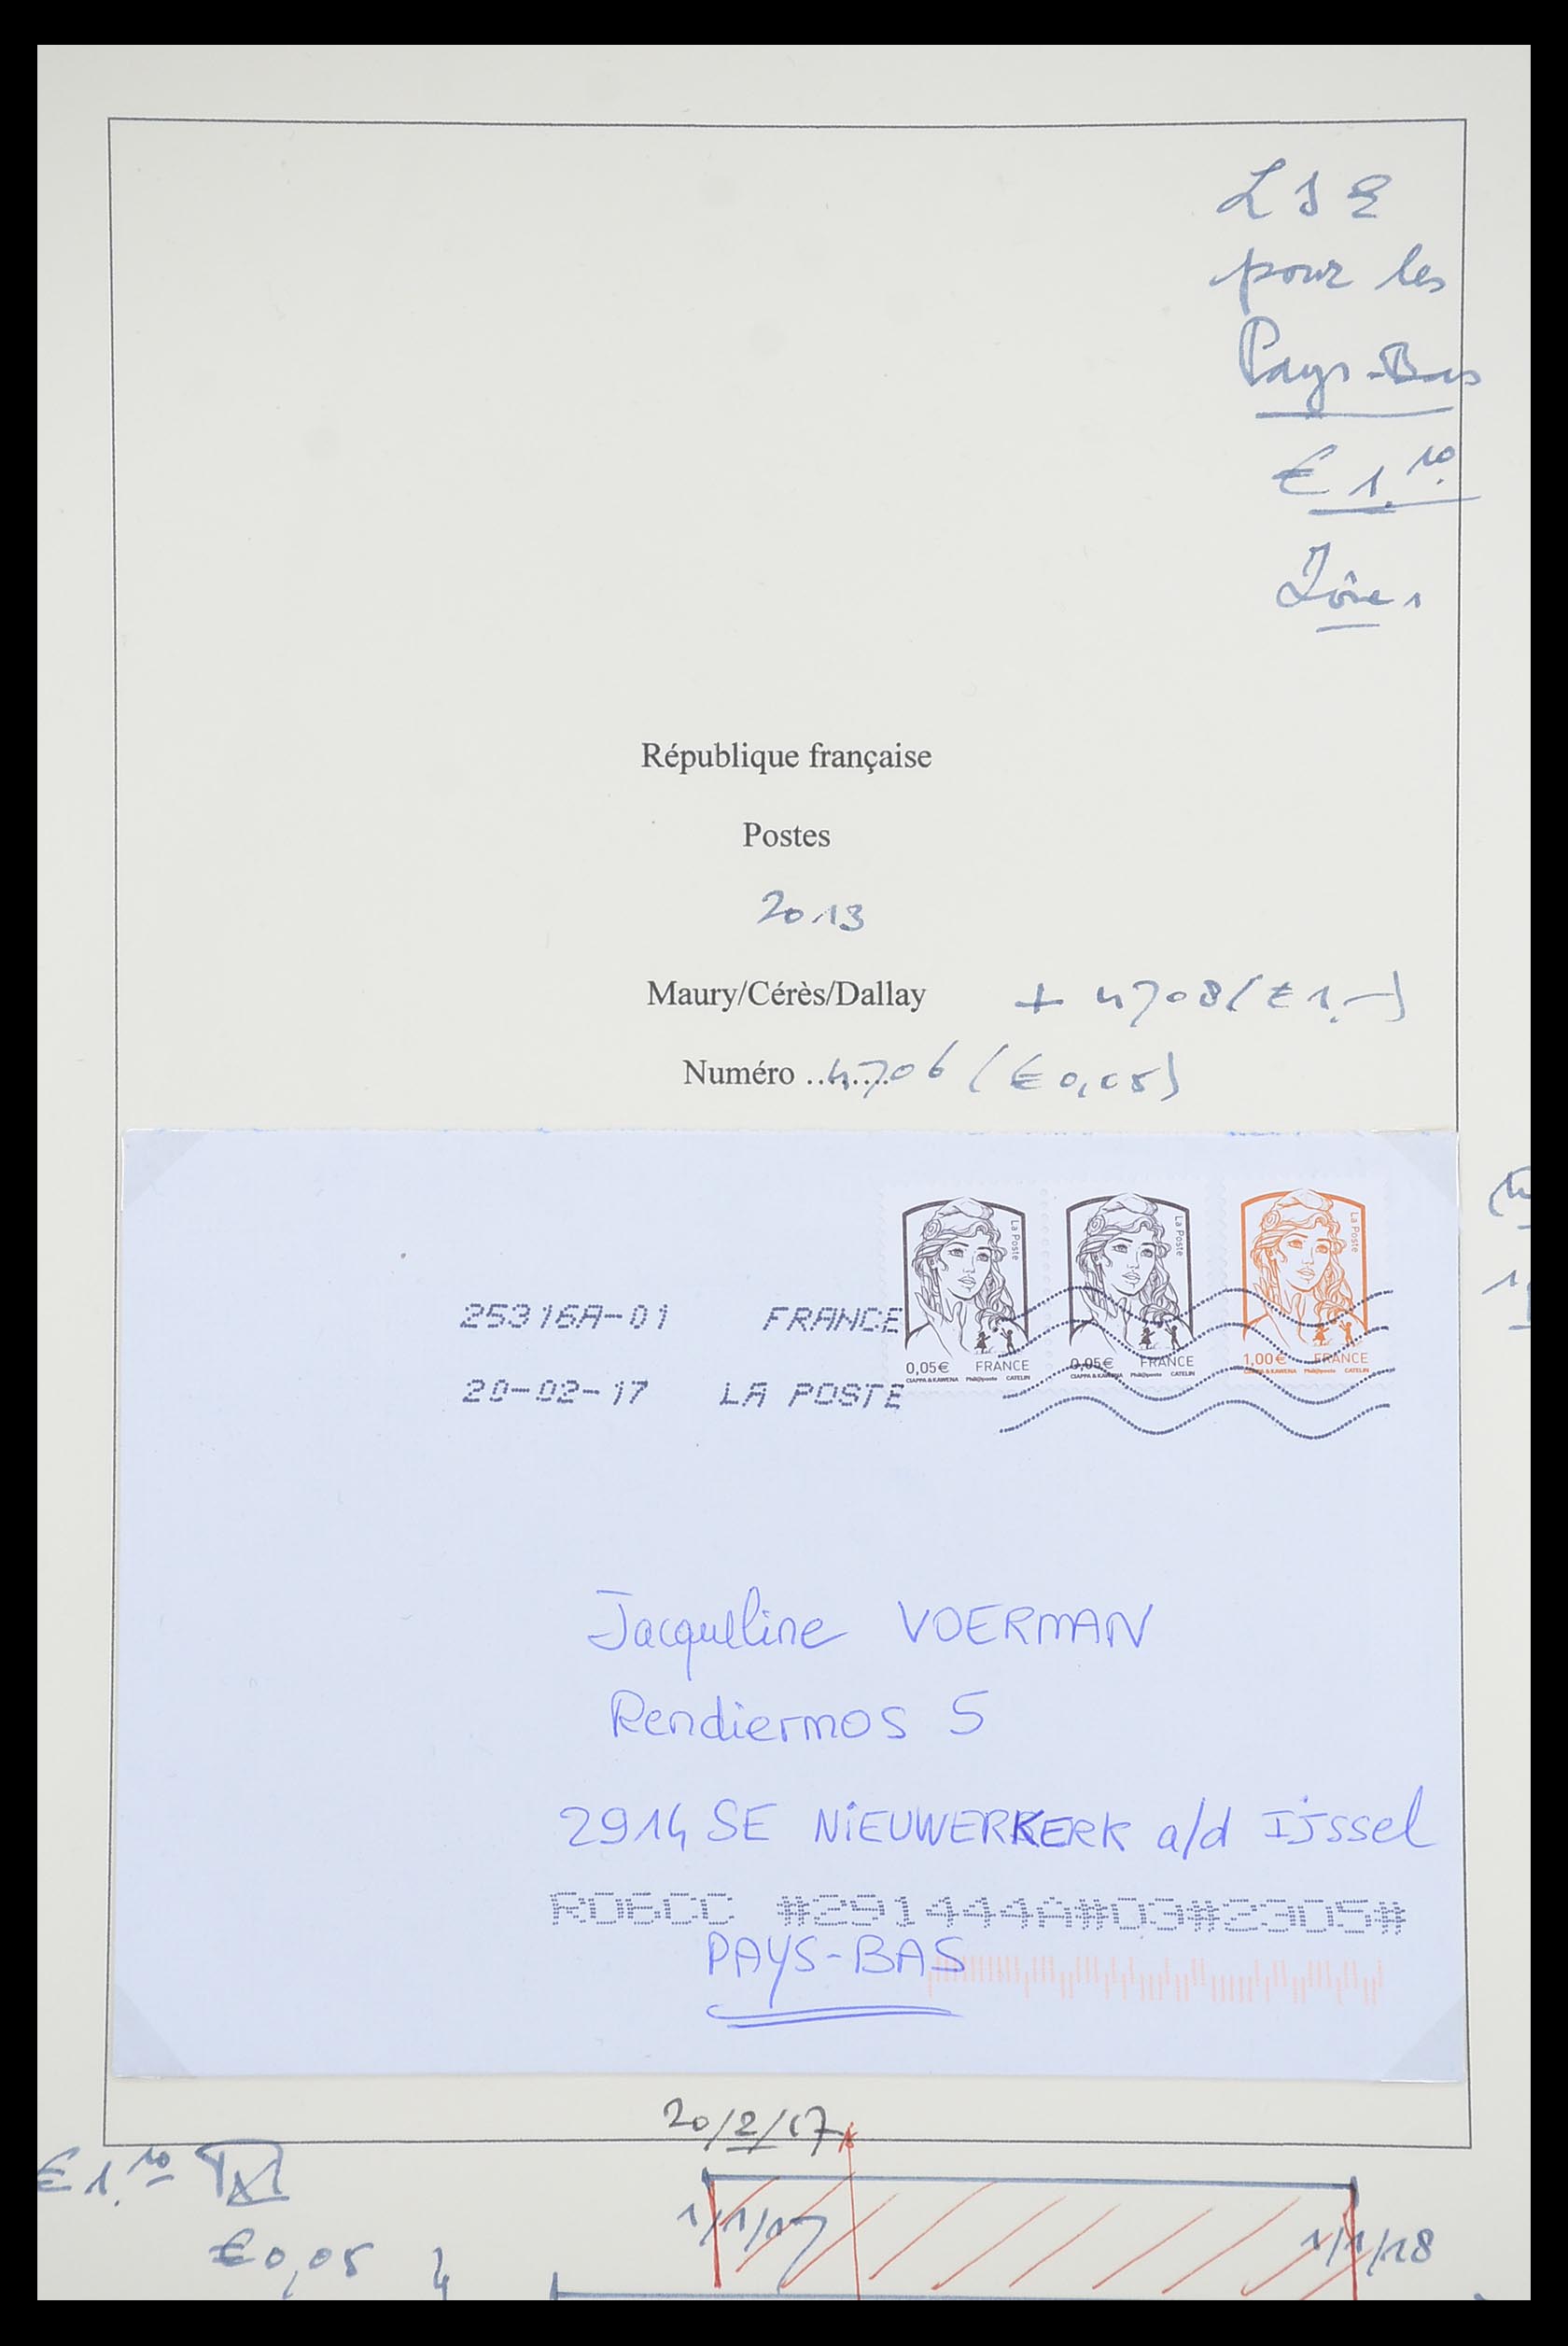 LSE
pour les
Pays-Bas
€ 1.10
Zône 1
République française
Postes
2013
Maury/Cérès/Dallay + 4708 (€ 1.—)
Numéro ........ 4706 (€ 0,05)
La Poste La Poste La Poste
25316A-01 FRANCE
0,05€ FRANCE 0,05€ FRANCE 1,00€ FRANCE
CIAPPA & KAWENA Phil@poste CATELIN CIAPPA & KAWENA Phil@poste CATELIN CIAPPA & KAWENA Phil@poste CATELIN
20-02-17 LA POSTE
Jacqueline VOERMAN
Rendiermos 5
2914 SE NIEUWERKERK a/d IJssel
RD6CC #291444A#03#2305#
PAYS-BAS
20/2/17
€ 1.10
1/1/17 1/1/18
€0,05